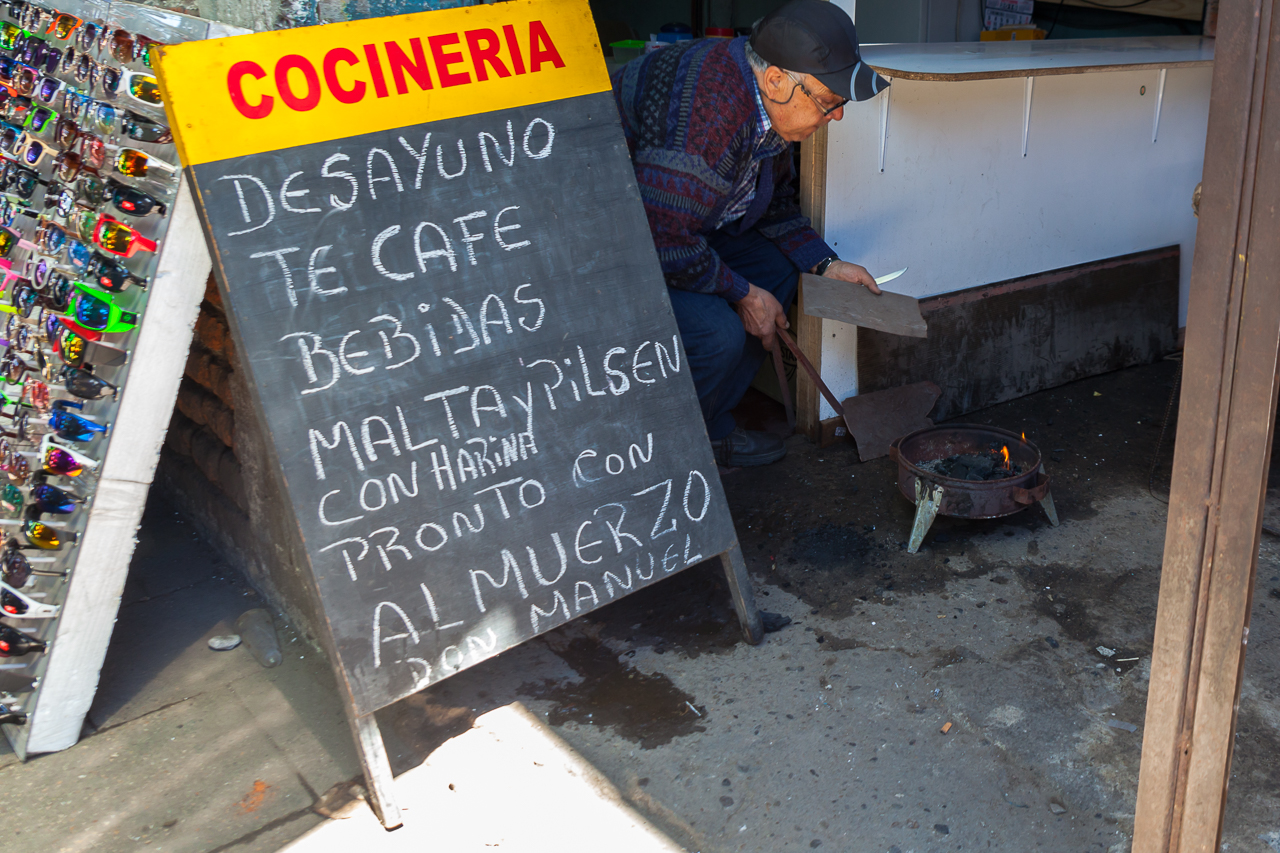 COCINERIA
DESAYUNO
TE CAFE
BEBIDAS
MALTA Y PILSEN
CON HARINA
PRONTO CON CON
ALMUERZO
DON MANUEL